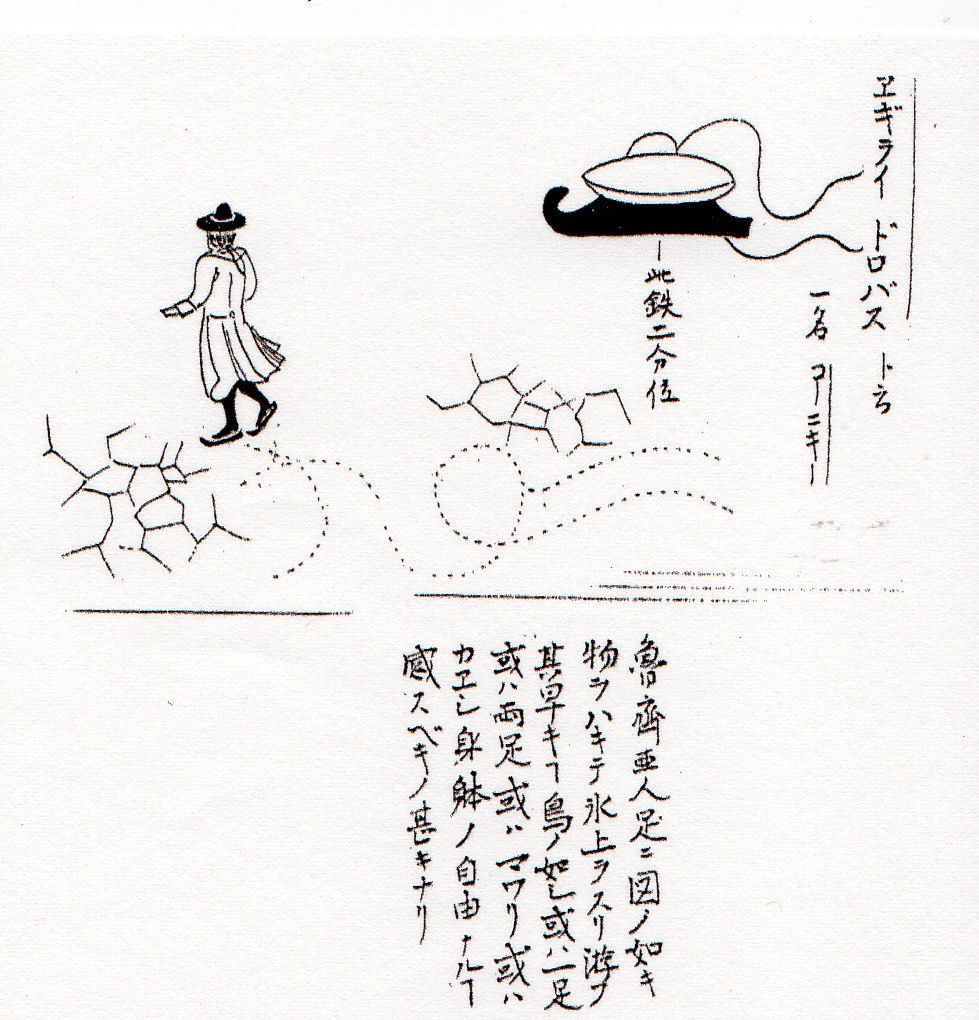 ヱギライ ドロバス ト云
一名 コーニキー
此鉄二分位
魯齊亜人足ニ図ノ如キ
物ヲハキテ氷上ヲスリ游フ
其早キヿ鳥ノ如シ或ハ一足
或ハ両足或ハマワリ或ハ
カヱシ身躰ノ自由ナルヿ
感スベキノ甚キナリ